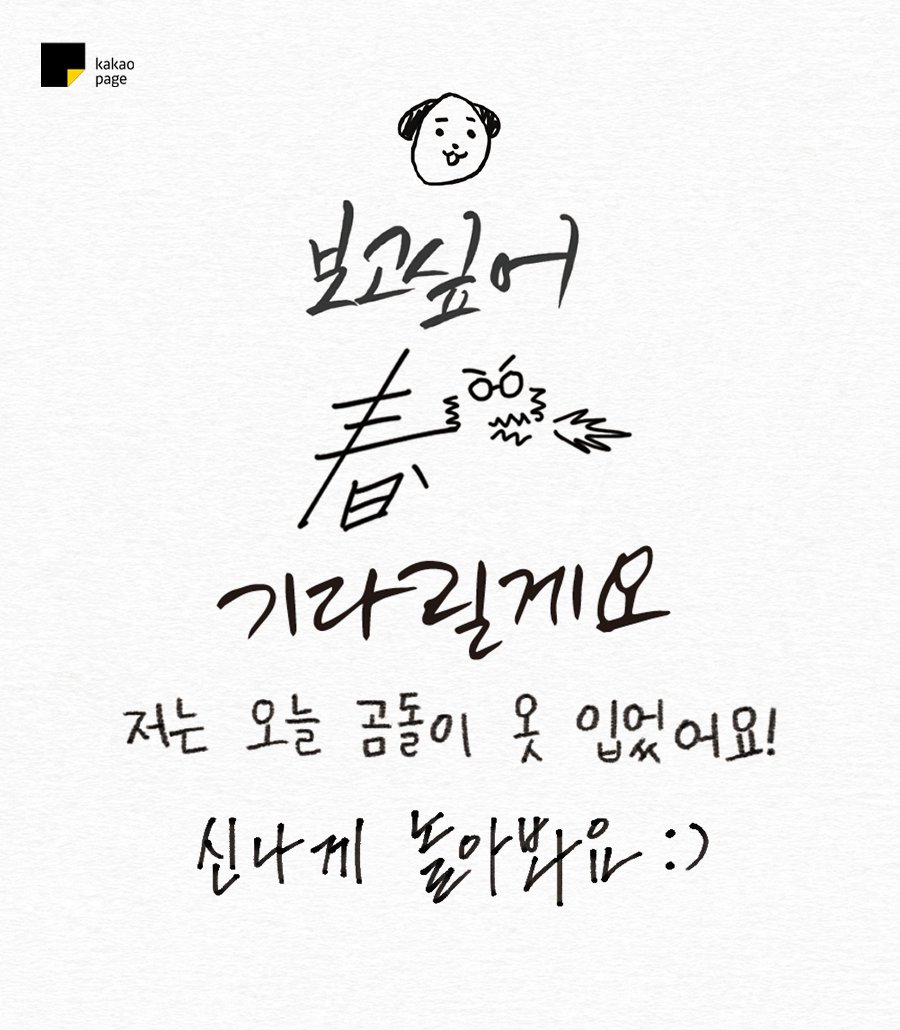 kakao
page
보고싶어
春
기다릴게요
저는 오늘 곰돌이 옷 입었어요!
신나게 놀아봐요 :)